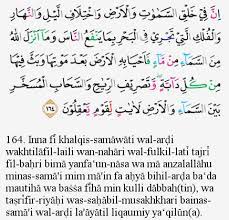 اِنَّ فِيْ خَلْقِ السَّمٰوٰتِ وَالْاَرْضِ وَاخْتِلَافِ الَّيْلِ وَالنَّهَارِ
وَالْفُلْكِ الَّتِيْ تَجْرِيْ فِى الْبَحْرِ بِمَا يَنْفَعُ النَّاسَ وَمَآ اَنْزَلَ اللّٰهُ
مِنَ السَّمَاۤءِ مِنْ مَّاۤءٍ فَاَحْيَا بِهِ الْاَرْضَ بَعْدَ مَوْتِهَا وَبَثَّ فِيْهَا
مِنْ كُلِّ دَاۤبَّةٍ ۖ وَّتَصْرِيْفِ الرِّيٰحِ وَالسَّحَابِ الْمُسَخَّرِ
بَيْنَ السَّمَاۤءِ وَالْاَرْضِ لَاٰيٰتٍ لِّقَوْمٍ يَّعْقِلُوْنَ ١٦٤
164. Inna fī khalqis-samāwāti wal-arḍi
wakhtilāfil-laili wan-nahāri wal-fulkil-latī tajrī
fil-baḥri bimā yanfa'un-nāsa wa mā anzalallāhu
minas-samā'i mim mā'in fa aḥyā bihil-arḍa ba'da
mautihā wa baṡṡa fīhā min kulli dābbah(tin), wa
taṣrīfir-riyāḥi was-saḥābil-musakhkhari bainas-
samā'i wal-arḍi la'āyātil liqaumiy ya'qilūn(a).